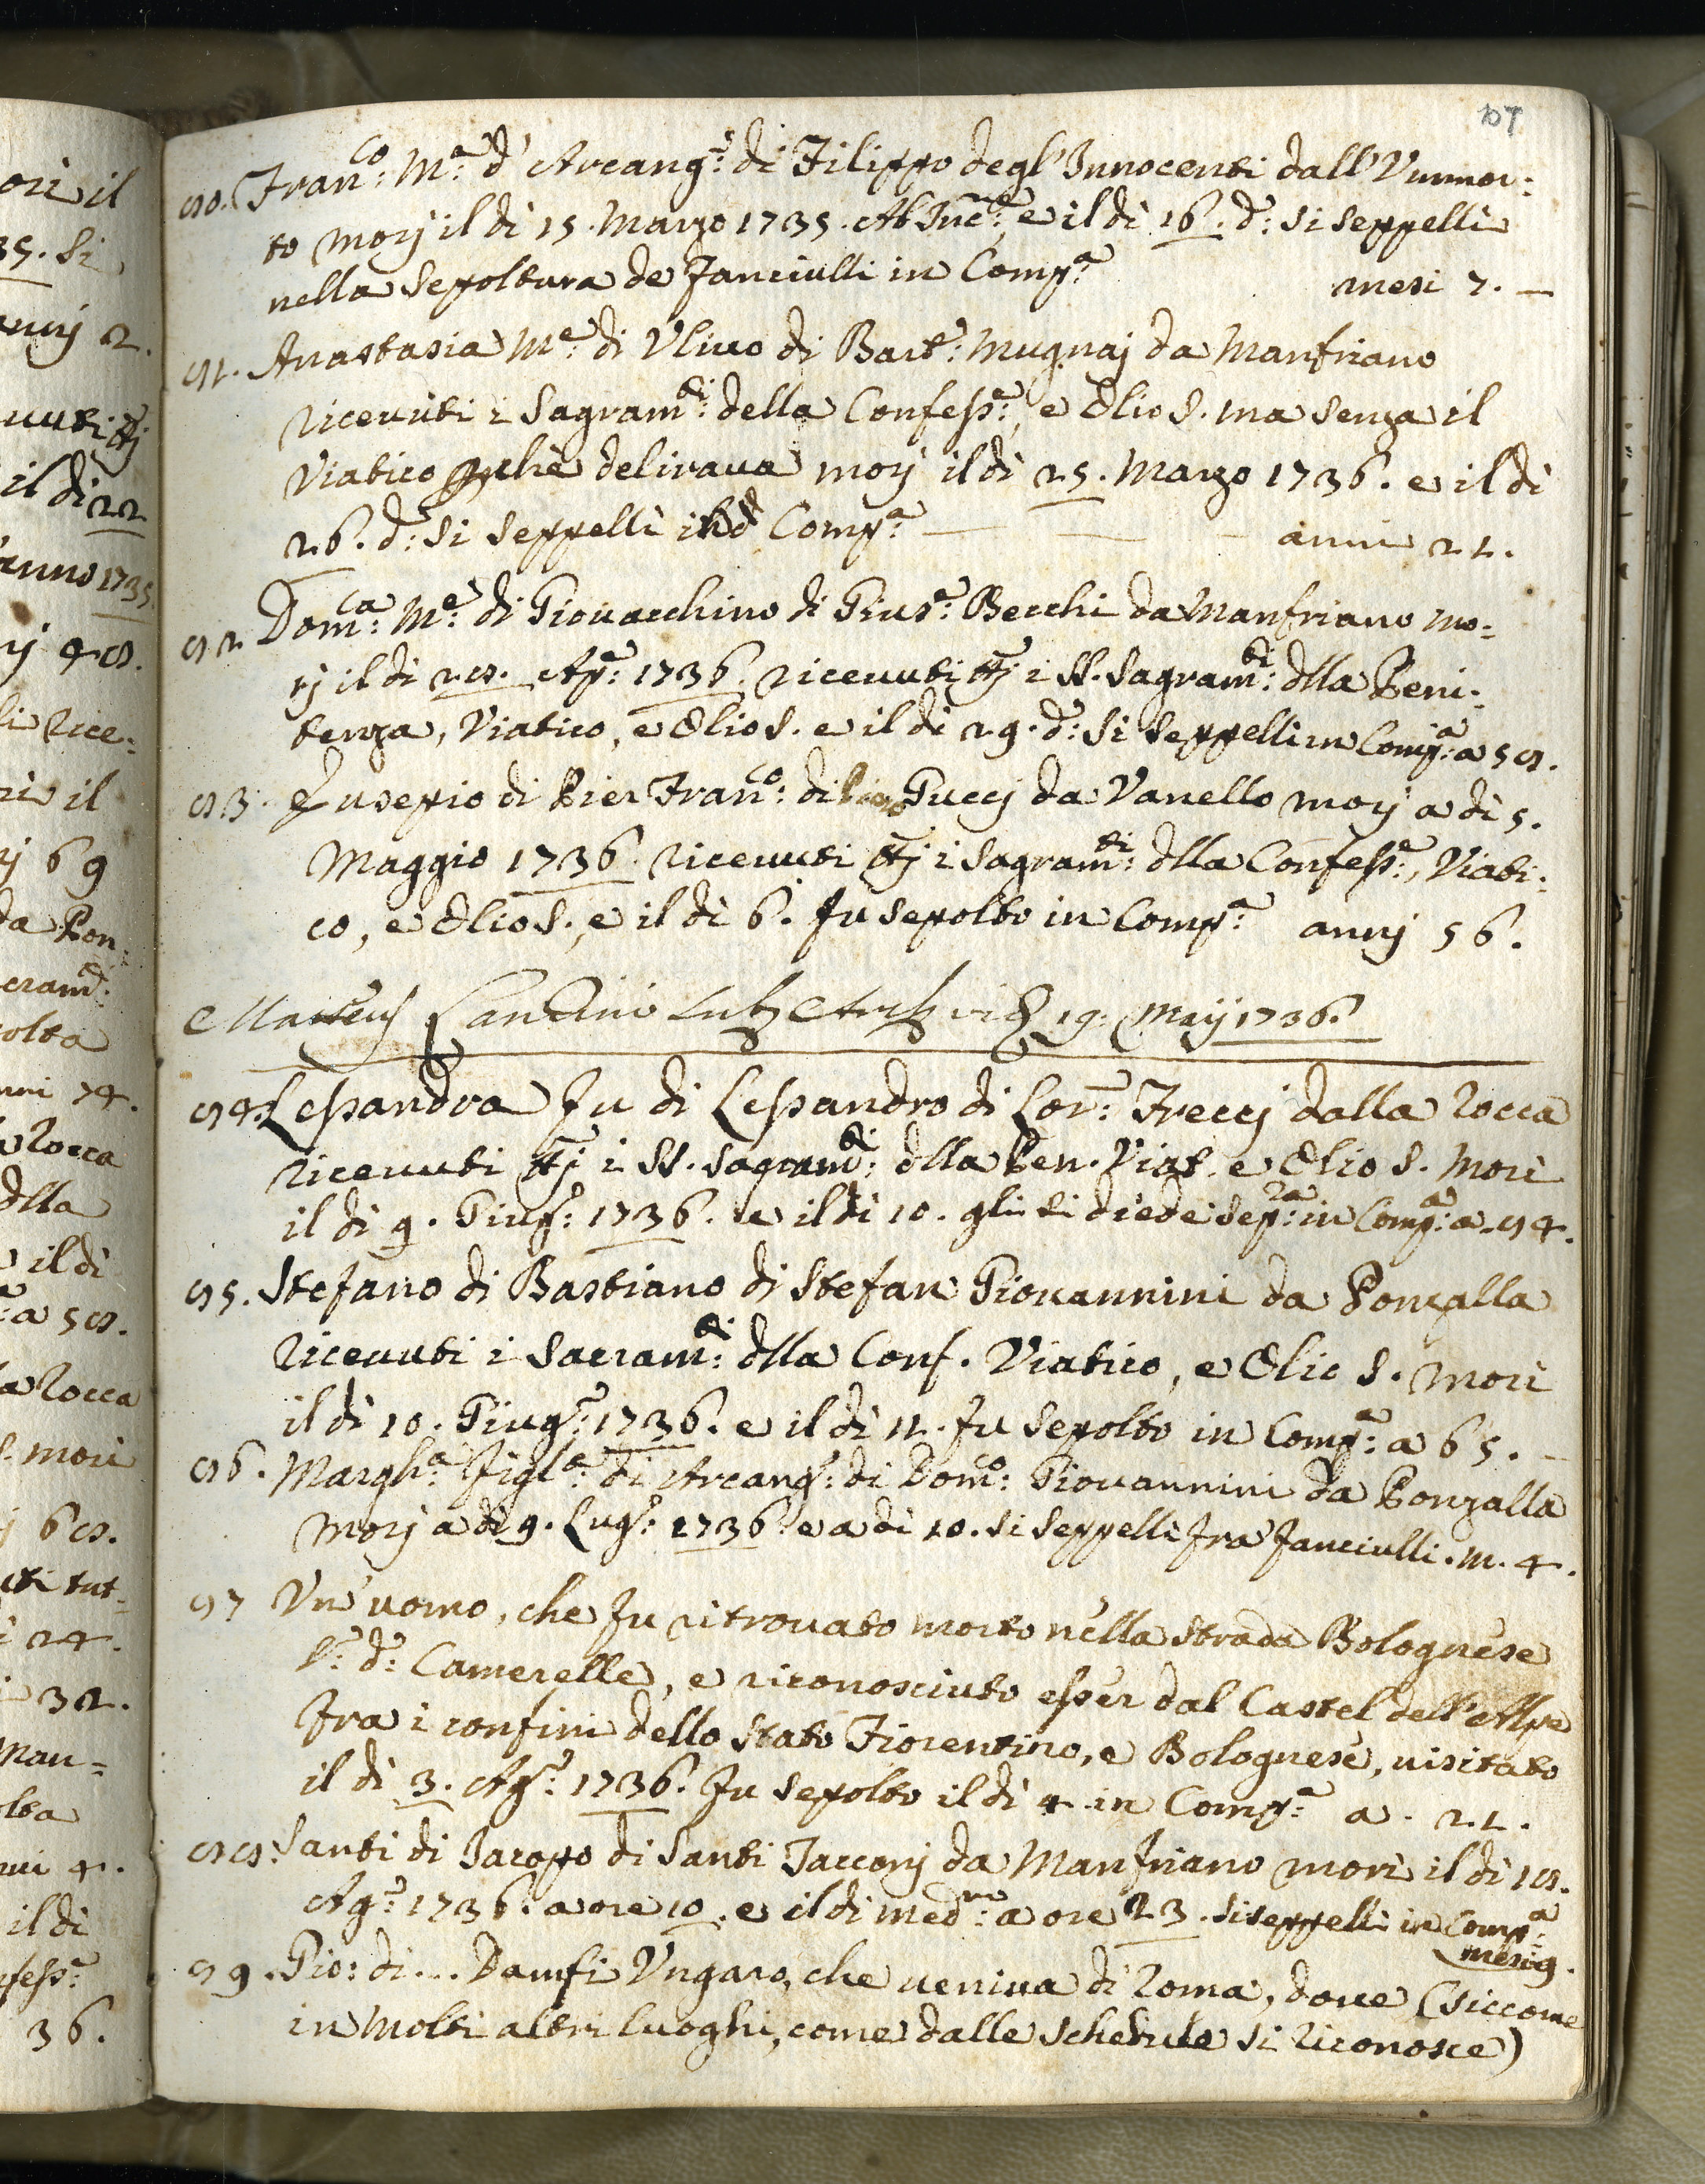 107
90. Fran:co M:a d'Arcang:o di Filippo degl'Innocenti dall'Vnmor:
to morj il dì 15. Marzo 1735. Ab Inc:ne e il dì 16. d:o si seppellì
nella sepoltura de fanciulli in Comp:a mesi 7. —
91. Anastasia M:e di Vlivo di Bart:o Mugnaj da Manfriano
ricevuti i Sagram:ti della Confess:e, e Olio S. ma senza il
Viatico pchè delirava morj il dì 25. Marzo 1736. e il dì
26. d:o si seppellì in Comp:a — — — anni 21.
92 Dom:ca M:e di Giovacchino di Gius:e Becchi da Manfriano mo:
rj il dì 28. Ap:e 1736. ricevuti ttj i SS. Sagram:ti dlla Peni:
tenza, Viatico, e Olio S. e il dì 29. d:o si seppellì in Comp:a a 58.
93. Eusepio di Pier Fran:co di Guccj da Vanello morj a dì 5.
Maggio 1736. ricevuti ttj i Sagram:ti dlla Confess:e, Viati:
co, e Olio S., e il dì 6. fu sepolto in Comp:a annj 56.
19: Maij 1736.
94. Lessandra fu di Lessandro di Lor:o Freccj dalla Rocca
ricevuti ttj i SS. Sagram:ti dlla Pen. Viat. e Olio S. Morì
il dì 9. Giug:o 1736. e il dì 10. gli si diede sep:ra in Comp:a a. 94.
95. Stefano di Bastiano di Stefan Giovannini da Ponzalla
Ricevuti i Sacram:ti dlla Conf. Viatico, e Olio S. Morì
il dì 10. Giug:o 1736. e il dì 11. fu sepolto in Comp:a a 65. —
96. Margh:a Figl:a di Arcang:o di Dom:co Giovannini da Ponzalla
Morj a dì 9. Lug:o 1736. e a dì 10. si seppellì fra fanciulli. m. 4.
97 Vn'uomo, che fu ritrovato morto nella strada Bolognese
d:o Camerelle, e riconosciuto esser dal Castel dell'Alpe
fra i confini dello Stato Fiorentino, e Bolognese, visitato
il dì 3. Ag:o 1736. fu sepolto il dì 4 in Comp:a a. 21.
98. Santi di Jacopo di Santi Jacconj da Manfriano morì il dì 18.
Ag:o 1736. a ore 10. e il dì med:mo a ore 23. si seppellì in Comp:a
mesi 9.
99. Gio: di... Bamfi Vngaro, che veniva di Roma, dove (siccome
in molti altri luoghi, come dalle schedule si riconosce)